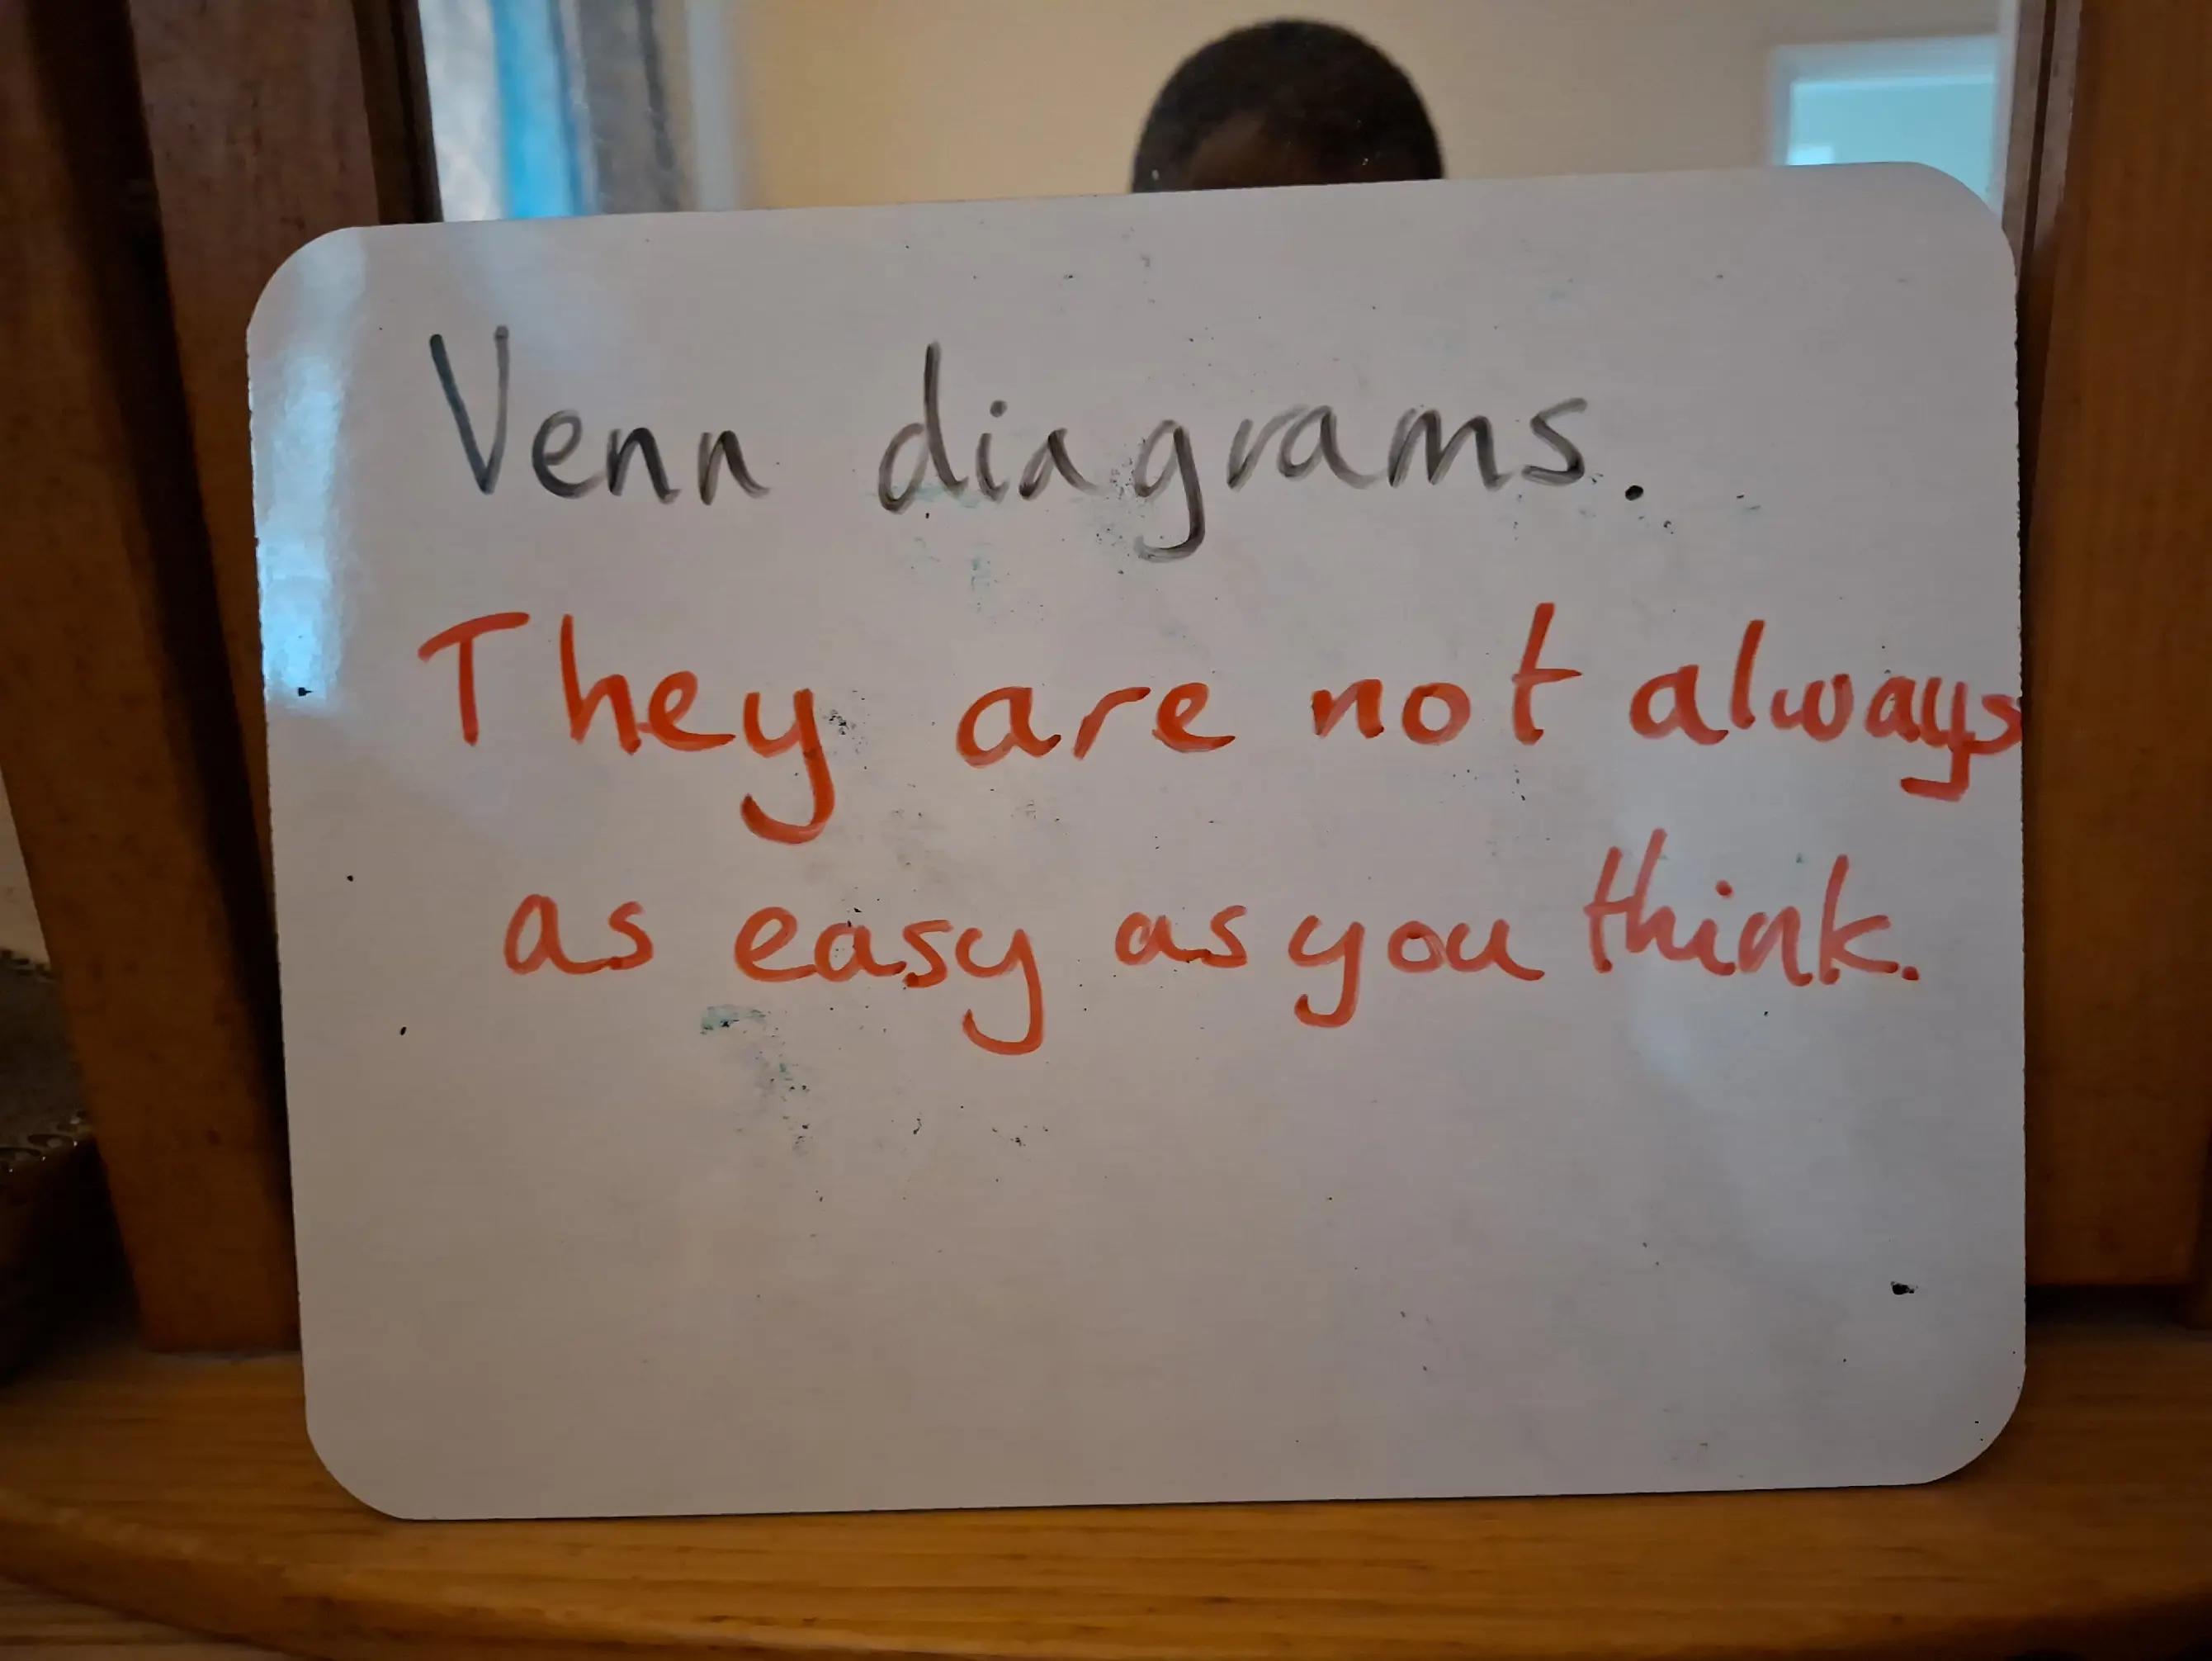 Venn diagrams.
They are not always
as easy as you think.